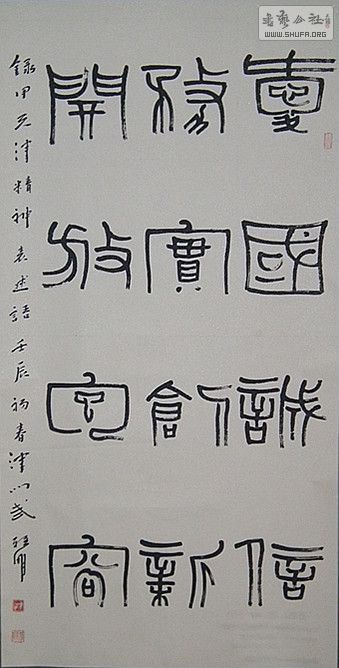 書藝公社
WWW.SHUFA.ORG
愛國誠信
務實創新
開放包容
錄天津精神表述語壬辰初春津門武